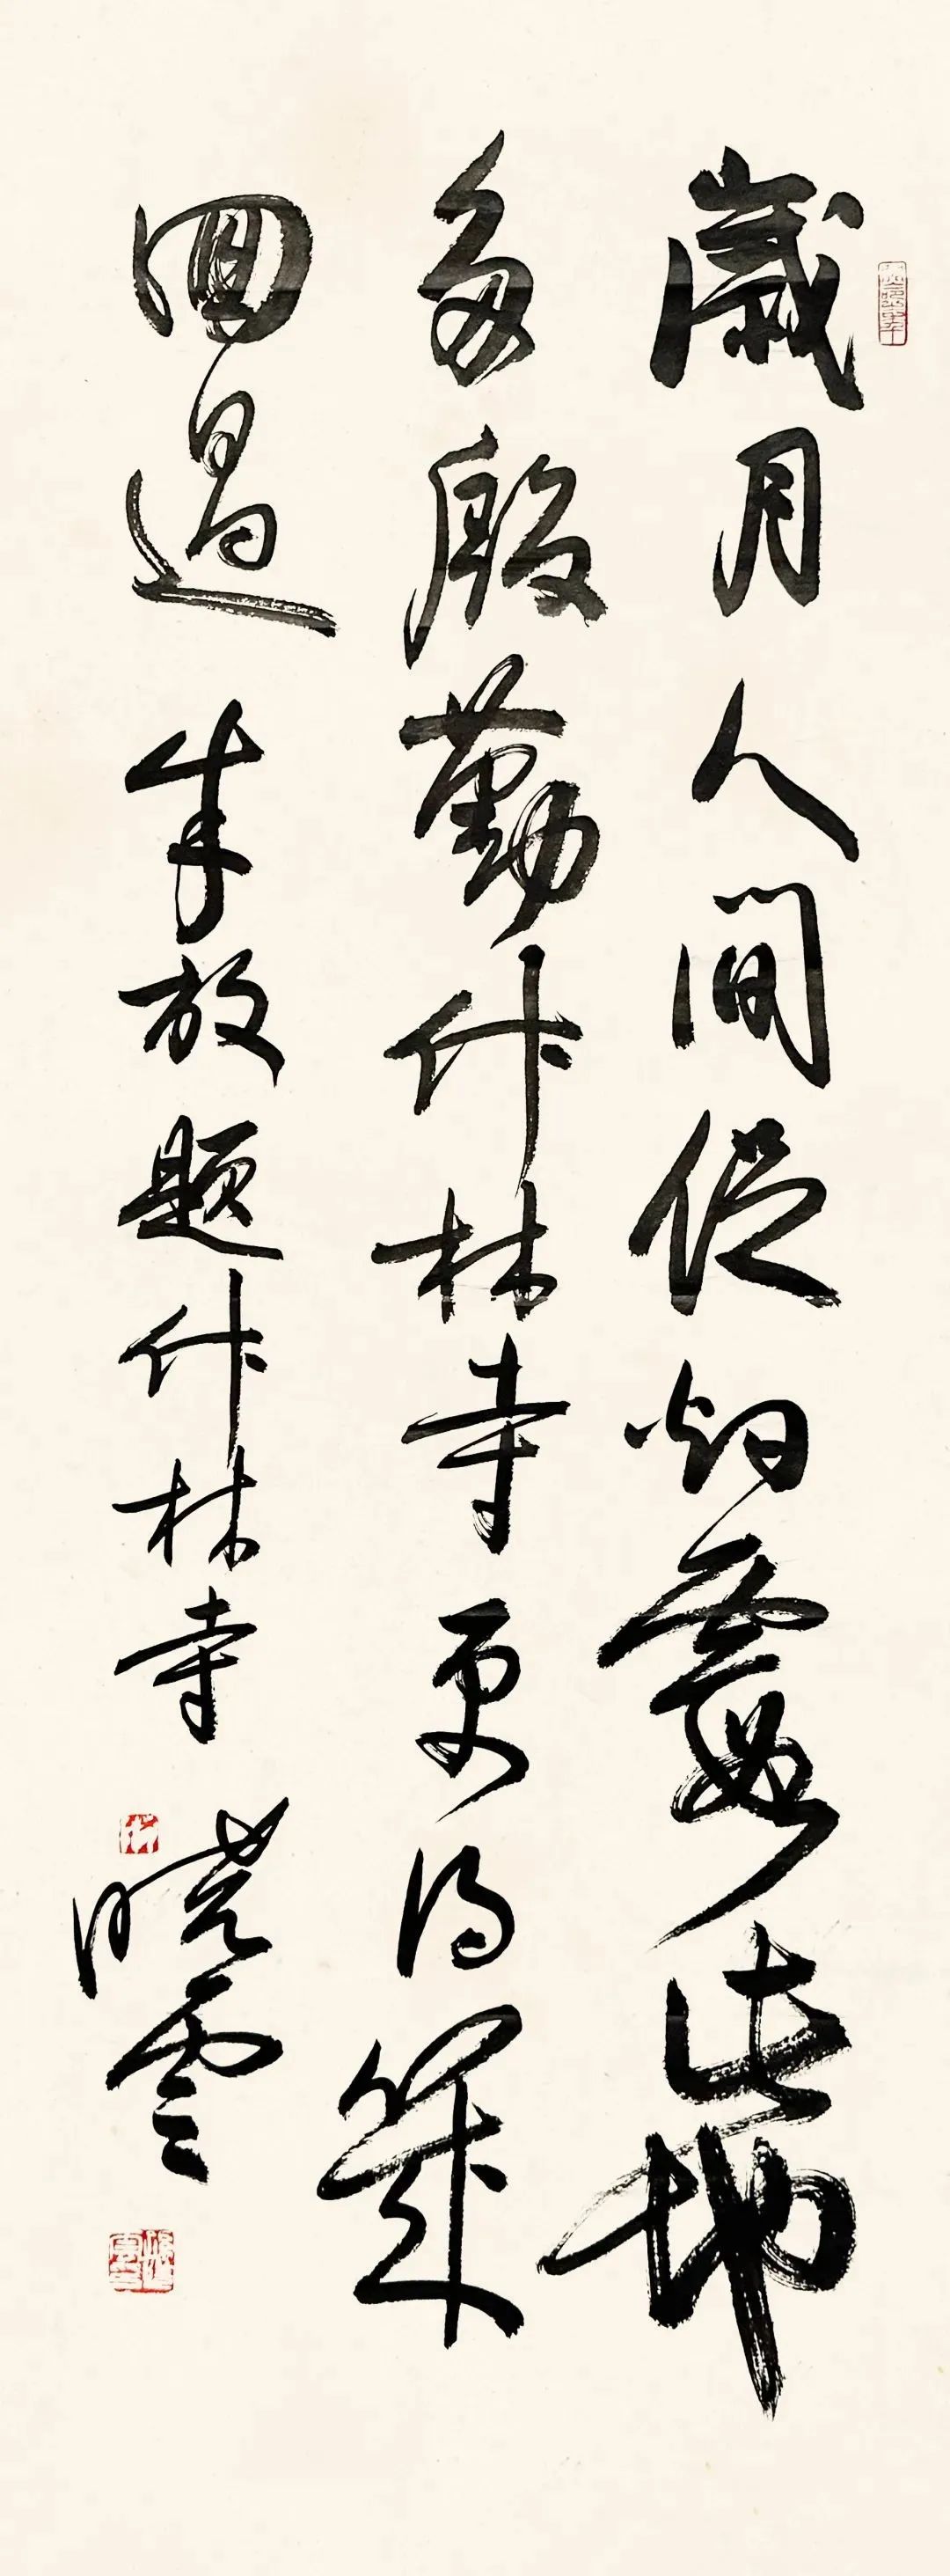 歲月人間促煙霞此地
多殷勤竹林寺更得幾
回過 朱放題竹林寺
曉雲